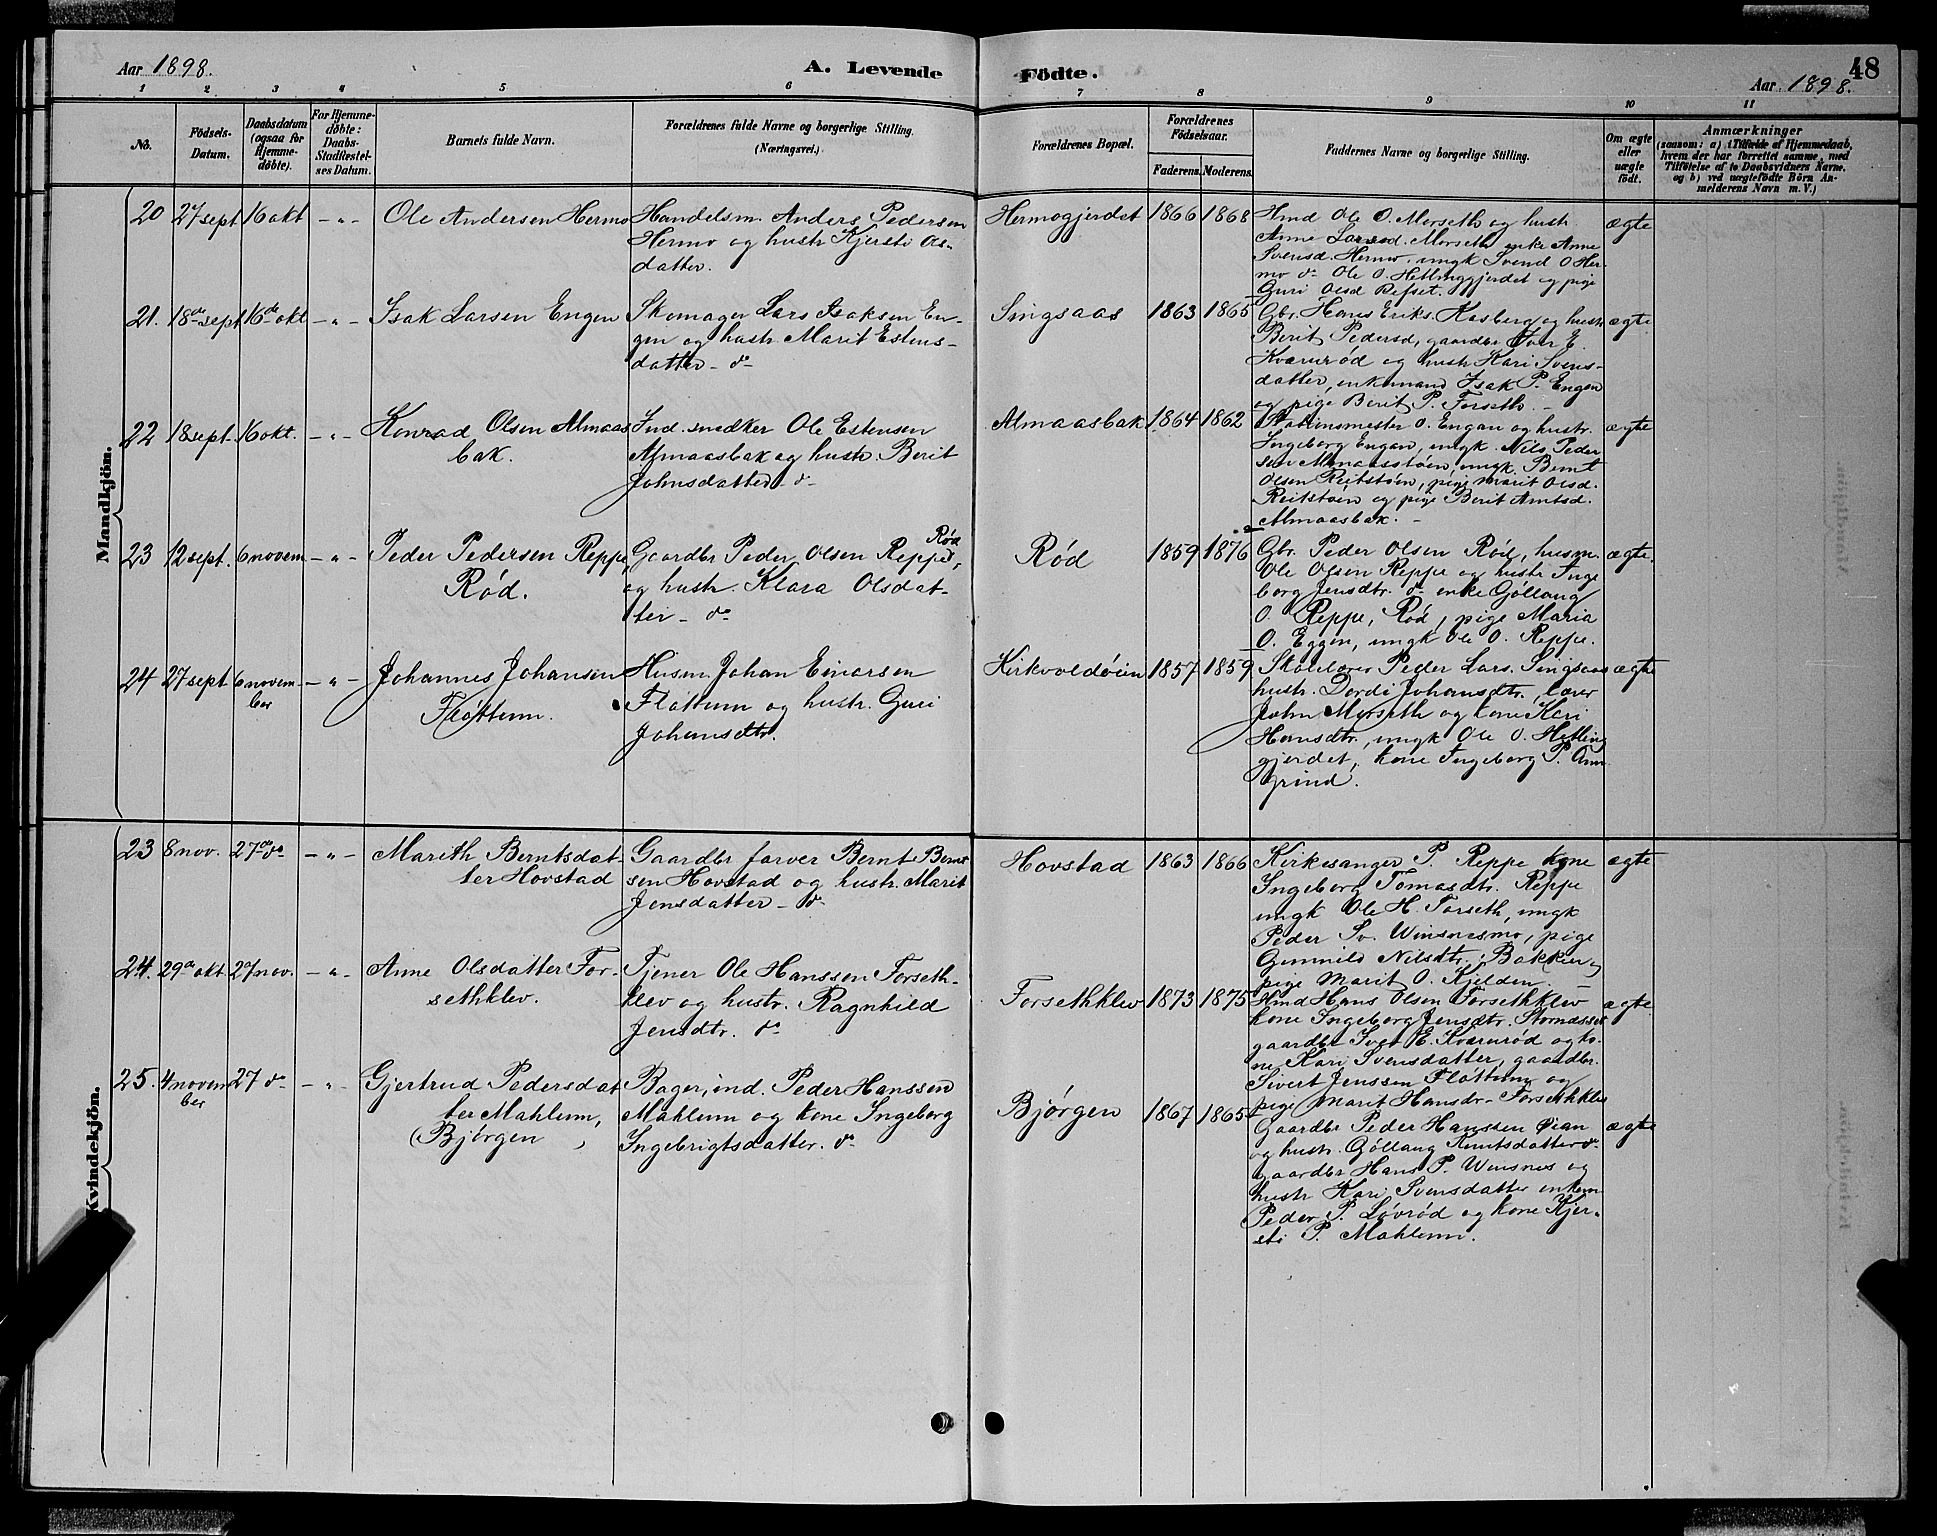 Aar 1898.
A. Levende
1 2 3 4 5 6
No.
Födsels-
Datum.
Daabsdatum
(ogsaa for
Hjemme-
döbte).
For Hjemme-
döbte:
Daabs-
Stadfestel-
ses Datum.
Barnets fulde Navn.
Forældrenes fulde Navne og borgerlige Stilling.
(Næringsvei.)
Mandkjön.
20 27 sept 16 okt - " - Ole Andersen Hermo
Handelsm. Anders Pedersen
Hermo og hustr Kjersti Ols-
datter.
21. 18de sept 16de okt - " - Isak Larsen Engen
Skomager Lars Isaksen En-
gen og hustr Marit Estens-
datter - do
22 18 sept. 16 okt. - " - Konrad Olsen Almaas
bak.
Ind. snedker Ole Estensen
Almaasbak og hustr. Berit
Johnsdatter - do
23 12 sept. 6 novem - " - Peder Pedersen Reppe
Rød.
Gaardbr Peder Olsen Reppe, Rød
og hustr. Klara Olsdat-
ter - do
24 27 sept 6 novem- - " - Johannes Johansen
ber
Fløttum.
Husm. Johan Einarsen
Fløttum og hustr. Guri
Johansdtr.
Kvindekjön.
23 8 nov. 27de do - " - Mareth Berntsdat-
ter Hovstad
Gaardbr farver Bernt Bernt
sen Hovstad og hustr. Marit
Jensdatter - do
24. 29de okt. 27 nov. - " - Anne Olsdatter For-
sethklev.
Tjener Ole Hanssen Forseth-
klev og hustr. Ragnhild
Jensdtr. do
25. 4 novem 27 do - " - Gjertrud Pedersdat
ber
ter Mahlum,
(Bjørgen
Bager, ind. Peder Hanssen
Mahlum og kone Ingeborg
Ingebrigtsdatter. do
Födte.
48
Aar 1898.
7 8 9 10 11
Forældrenes Bopæl.
Forældrenes
Födselsaar.
Faderens. Moderens.
Faddernes Navne og borgerlige Stilling.
Om ægte
eller
uægte
födt.
Anmærkninger
(saasom: a) i Tilfelde af Hjemmedaab,
hvem der har forrettet samme, med
Tilföielse af to Daabsvidners Navne.
og b) ved uægtefödte Börn An-
melderens Navn m. V.)
Hermogjerdet 1866 1868 ægte
Hmd Ole O. Morseth og hustr
Anne Larsd. Morseth enke Anne
Svensd. Hermo, ungk Svend O Her-
mo do Ole O. Hettinggjerdet og pige
Guri Olsd Refset.
Singsaas 1863 1865 ægte
Gbr. Hans Eriks. Kasberg og hustr
Berit Pedersd, gaardbr Iver E.
Kværnrød og hustr Kari Svens-
datter, enkemand Isak P. Engen
og pige Berit P. Forseth. -
Almaasbak 1864 1862 ægte
Stationsmester O. Engan og hustr.
Ingeborg Engan, ungk. Nils Peder
sen Almaasstøen, ungk. Bernt
Olsen Reitstøen, pige Marit Olsd.
Reitstøen og pige Berit Arntsd.
Almaasbak. -
Rød 1859 1876 ægte.
Gbr. Peder Olsen Rød, husm.
Ole Olsen Reppe og hustr Inge
borg Jensdtr. do enke Gøllaug
O. Reppe, Rød, pige Maria
O. Eggen, ungk Ole O. Reppe.
Kirkvoldøien 1857 1859 ægte
Skolelærer Peder Lars. Singsaas
hustr. Dordi Johansdtr., lærer
John Morseth og kone Kari
Hansdtr., ungk Ole O. Hetting
gjerdet, kone Ingeborg P. Aun
grind.
Hovstad 1863 1866 ægte
Kirkesanger P. Reppe kone
Ingeborg Tomasdtr. Reppe
ungk Ole H. Forseth, ungk
Peder Sv. Winsnesmo, pige
Gunnild Nilsdtr. Bakken og
pige Marit O. Kjelden. -
Forsethklev 1873 1875 ægte.
Hmd Hans Olsen Forsethklev
kone Ingeborg Jensdtr.
gaardbr Iver E. Kværnrød og ko-
ne Kari Svensdatter, gaardbr.
Sivert Jenssen Fløttum og
pige Marit Hansdr- Forsethklev
Bjørgen 1867 1865 ægte
Gaardbr Peder Hanssen
og hustr. Gøllaug Knutsdatter do
gaardbr Hans P. Winsnes og
hustr Kari Svensdatter enkem.
Peder P. Løvrød og kone Kjer-
sti P. Mahlum.